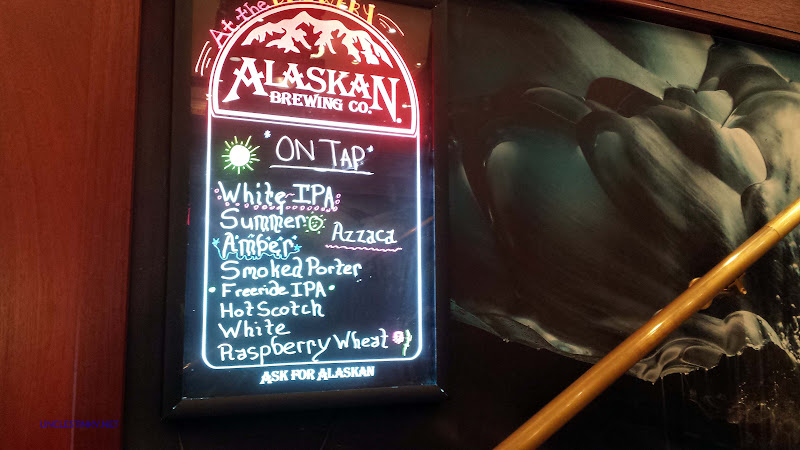 At the BREWERY
ALASKAN
BREWING CO.
ON TAP
White IPA
Summer
Azzaca
Amber
Smoked Porter
Freeride IPA
Hot Scotch
White
Raspberry Wheat
ASK FOR ALASKAN